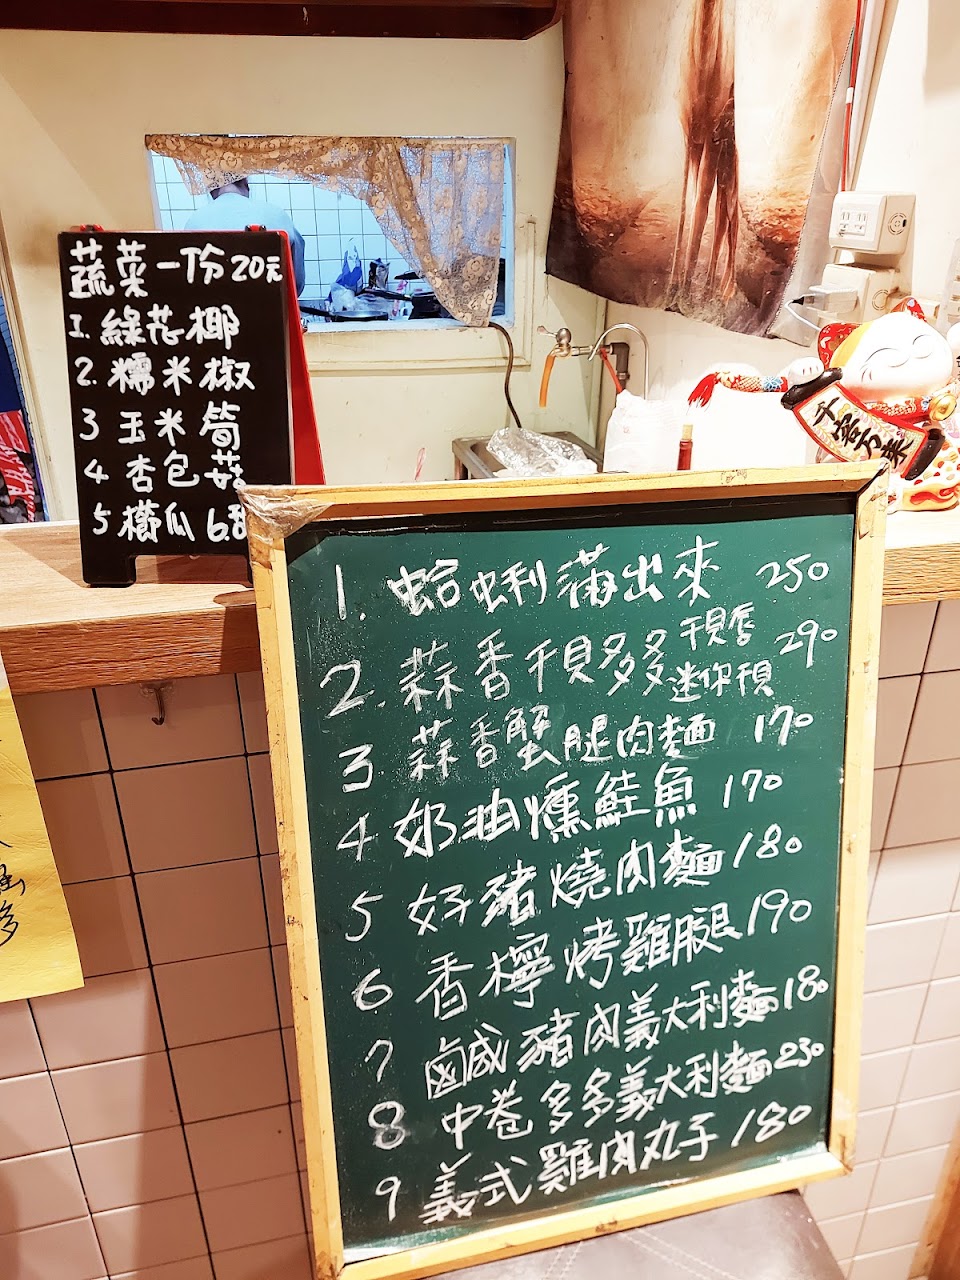 蔬菜一份20元
1.綠花椰
2.糯米椒
3玉米筍
4杏包菇
5櫛瓜
千客万来
1.蛤蜊滿出來 250
2.蒜香干貝多多 干貝香 迷你干貝 290
3蒜香蟹腿肉麵 170
4奶油燻鮭魚 170
5好豬燒肉麵 180
6香檸烤雞腿 190
7鹹豬肉義大利麵 180
8中卷多多義大利麵 230
9義式雞肉丸子 180